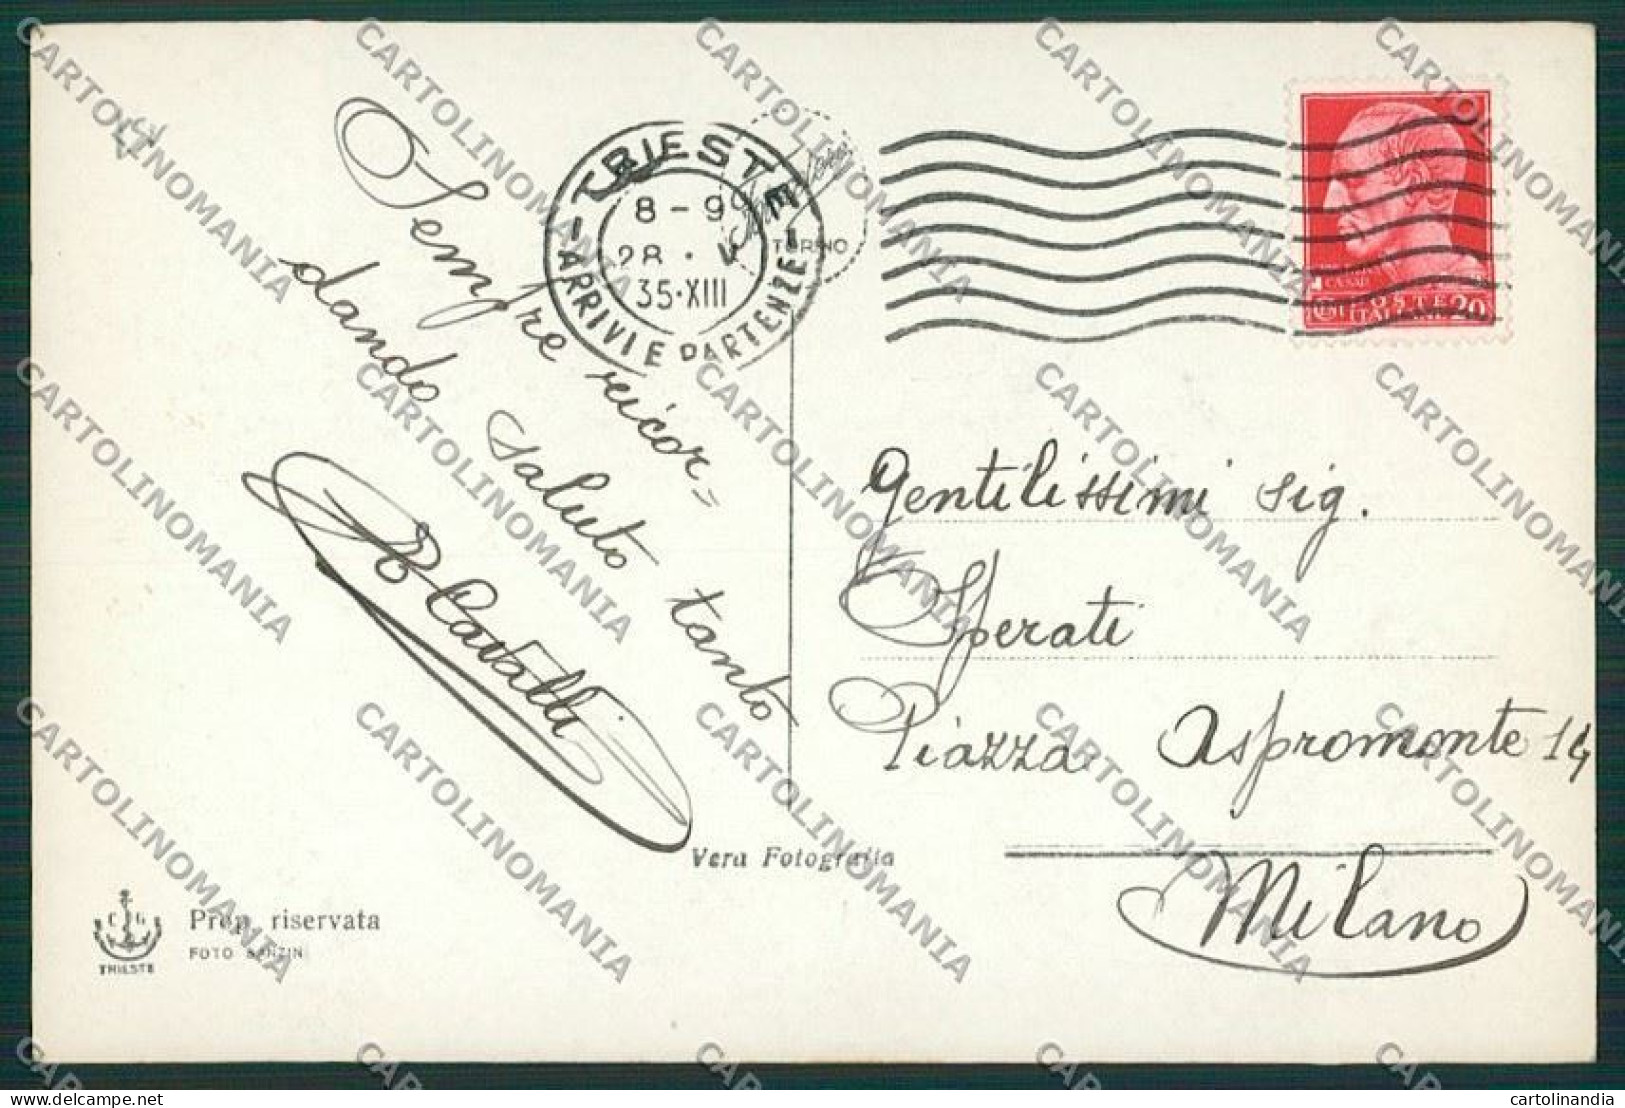 Sempre ricor-
dando saluto tanto
E Cavalli
TRIESTE
8-9
28 · V
35·XIII
ARRIVI E PARTENZE
TORINO
POSTE
ITALIANE
CENT 20
Gentilissimi Sig.
Sperati
Piazza Aspromonte 14
Milano
Vera Fotografia
C G
TRIESTE
Prop. riservata
FOTO BENZIN
CARTOLINOMANIA
cartolinomania.com
cartolinandia